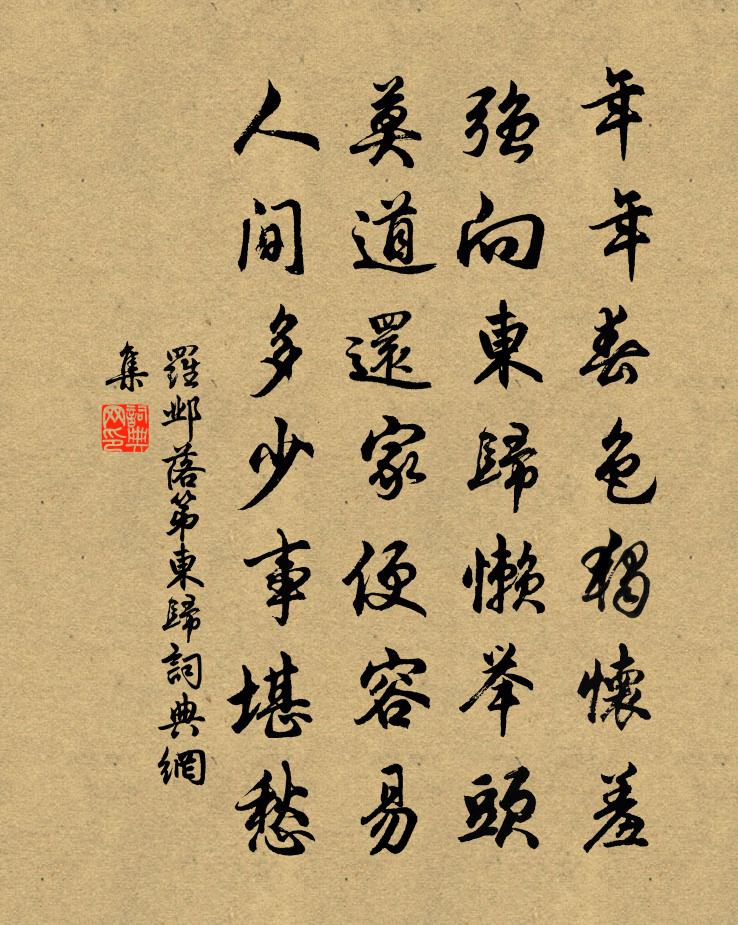 年年春色獨懷羞
強向東歸懶举頭
莫道還家便容易
人間多少事堪愁
羅鄴落第東歸詞典網
集
詞典网印